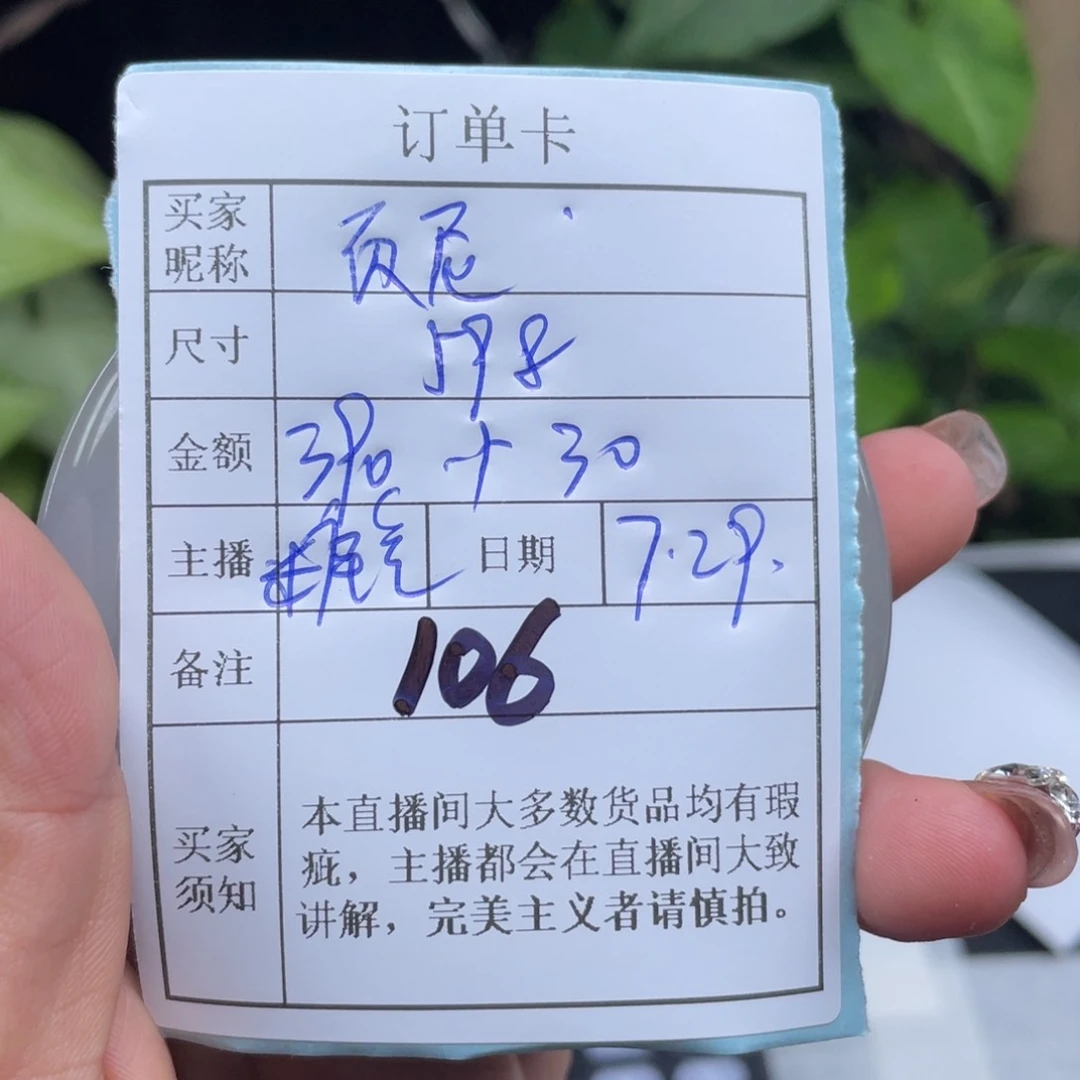 订单卡
买家昵称
尺寸 598
金额 390 + 30
主播 日期 7.29.
备注 106
买家须知
本直播间大多数货品均有瑕
疵，主播都会在直播间大致
讲解，完美主义者请慎拍。